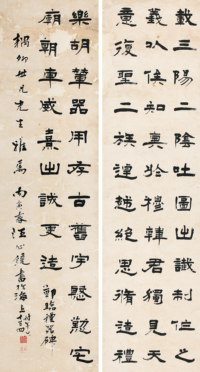 載三陽二陰吐圖出讖制作之
義以俟知奥於穆韓君獨見天
意復聖二族逴越絶思脩造禮
樂胡輦器用存古舊宇慇懃宅
廟朝車威熹出誠更造 臨禮器碑
世兄先生雅属 書於海上